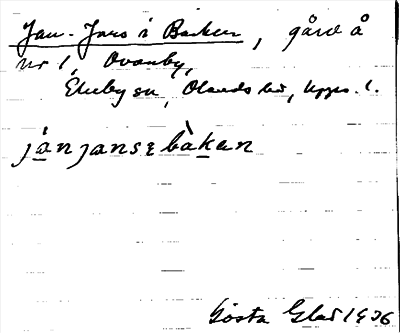 Jan-Jans i Backen, gård å
nr 1, Ovanby,
Ekeby sn, Olands hd, Upps. l.
jȧn jansebàkan
Gösta Glad 1936